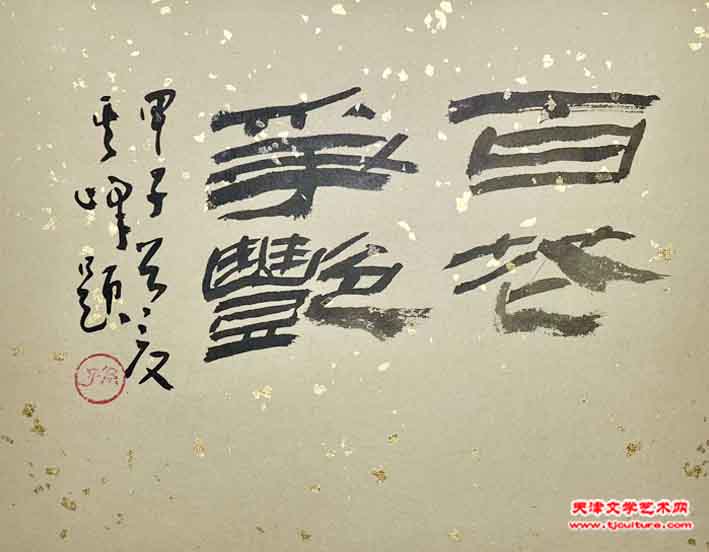 百花
爭艷
甲子
其峰題
天津文学艺术网
www.tjculture.com